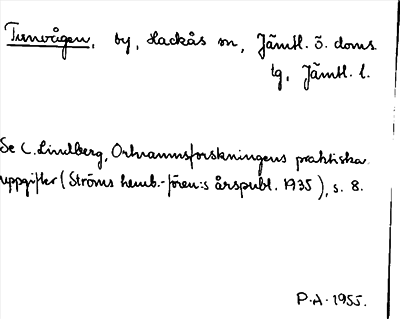 Tunvågen, by, Hackås sn, Jämtl. ö. doms
tg, Jämtl. l.
Se C. Lindberg, Ortnamnsforskningens praktiska
uppgifter (Ströms hemb.-fören:s årspubl. 1935), s. 8.
P.A. 1955.